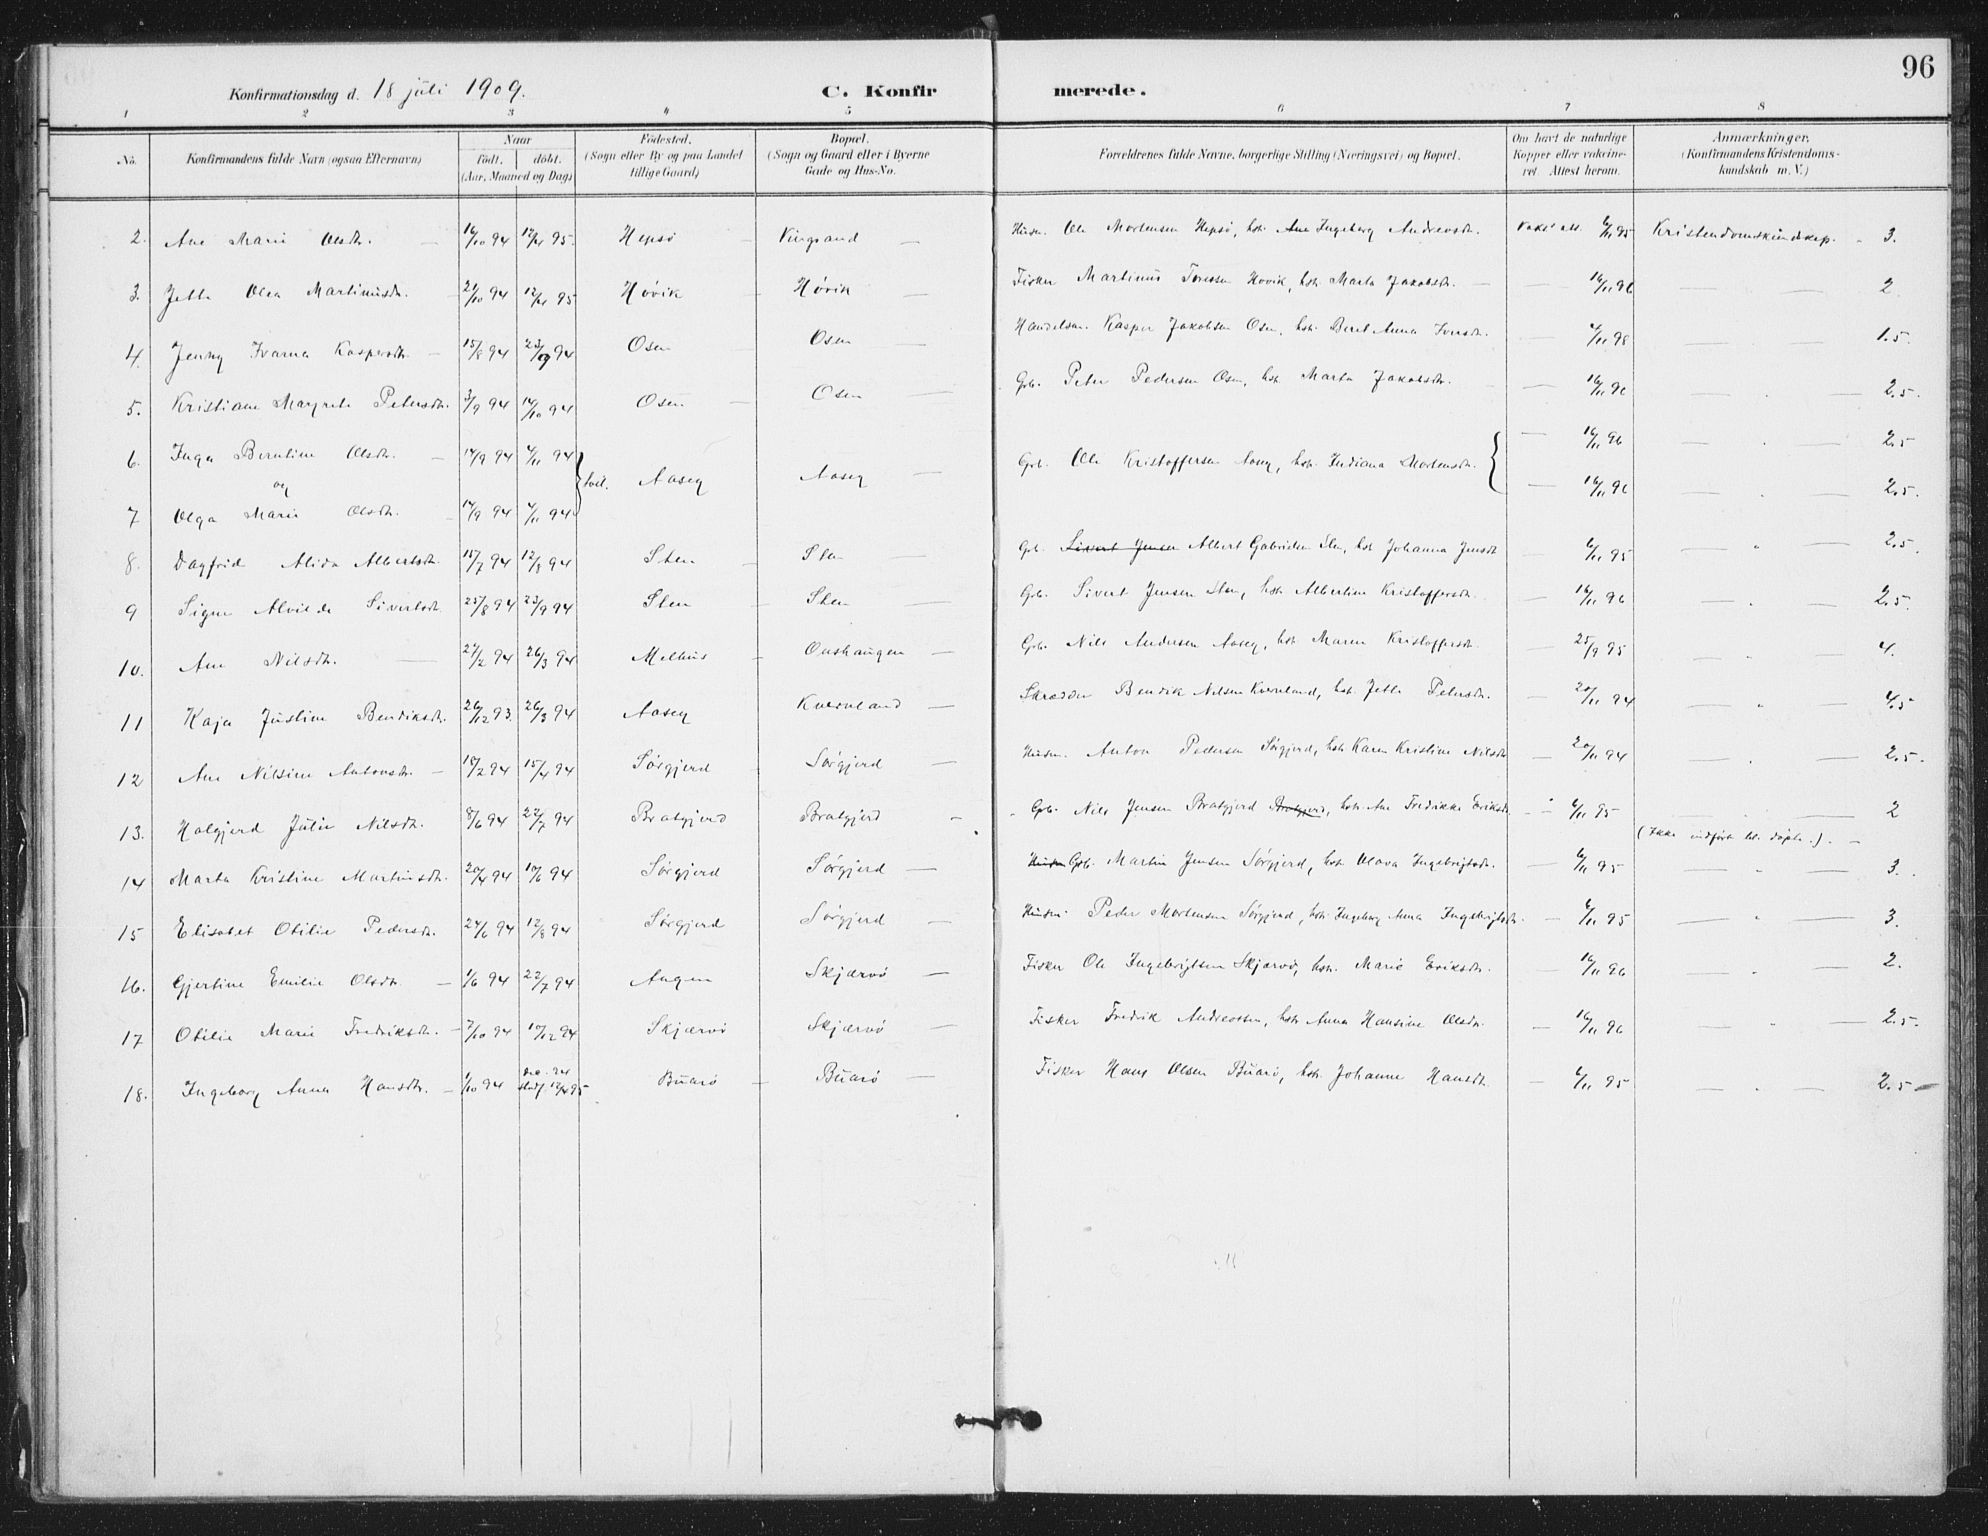 96
Konfirmationsdag d. 18 juli 1909. C. Konfirmerede.
1 2 3 4 5 6 7 8
No. Konfirmandens fulde Navn (ogsaa Efternavn) Naar født. døbt. (Aar, Maaned og Dag) Fødested. (Sogn eller By og paa Landet tillige Gaard) Bopæl. (Sogn og Gaard eller i Byerne Gade og Hus-No. Forældrenes fulde Navne, borgerlige Stilling (Næringsvei) og Bopæl. Om havt de naturlige Kopper eller vakcineret. Attest herom. Anmærkninger. (Konfirmandens Kristendomskundskab m. V.)
2. Ane Marie Olsdtr. — 16/10 94 12/4 95. Hepsø — Vingsand — Husm. Ole Mortensen Hepsø, hstr. Ane Ingeberg Andreasdtr. Vaks. att. 6/11 95 Kristendomskundskap. - 3.
3. Jetta Olea Martinusdtr. — 21/10 94 12/4 95 Høvik — Høvik — Fisker Martinus Toresen Hovik, hstr. Marta Jakobsdtr. — 16/11 96 — — 2
4. Jenny Ivarna Kaspersdtr. — 15/8 94 23/9 94 Osen — Osen — Handelsm. Kasper Jakobsen Osen, hstr. Beret Anna Iversdtr. — 4/11 98 — — 1.5.
5. Kristiane Margrete Petersdtr. 3/9 94 14/10 94 Osen — Osen — Grb. Peter Pedersen Osen, hstr. Marta Jakobsdtr. — 16/11 96 — . — 2.5.
6. Inga Berntine Olsdtr. — 14/9 94 4/11 94 Aaseg Aaseg — Grb. Ole Kristoffersen Aaseg, hstr. Indiana Mortensdtr. — 16/11 96 — . — 2.5
og tvil.
7 Olga Marie Olsdtr. — 14/9 94 4/11 94 — 16/11 96 — . — 2.5.
8. Dagfrid Alida Albertsdtr. 15/7 94 12/8 94 Sten — Sten — Grb. Sivert Jensen Albert Gabrielsen Sten, hstr. Johanna Jensdtr. — 6/11 95 — " — 2.5.
9 Signe Alvilde Sivertsdtr. 25/8 94 23/9 94 Sten — Sten — Grb. Sivert Jensen Sten, hstr. Albertine Kristoffersdtr. — 16/11 96 — . — 2.5.
10. Ane Nilsdtr. — 27/2 94 26/3 94 Melhus — Onshaugen — Grb. Nils Andersen Aaseg, hstr. Maren Kristoffersdtr. — 25/9 95 — . — 4.
11 Kaja Justine Bendiksdtr. 26/12 93. 26/3 94 Aaseg Kvernland — Skrædder Bendik Nilsen Kvernland, hstr. Jetta Petersdtr. — 20/11 94 — " — 1.5
12 Ane Nilsine Antonsdtr. — 18/2 94 15/4 94 Sørgjerd — Sørgjerd — Husm. Anton Pedersen Sørgjerd, hstr. Karen Kristine Nilsdtr. — 20/11 94 — . — 2.5.
13. Halgjerd Julie Nilsdtr. 8/6 94 22/7 94 Bratgjerd Bratgjerd — Grb. Nils Jensen Bratgjerd Bratgjerd, hstr. Ane Fredrikke Eriksdtr. — 6/11 95 — . — 2
(Ikke indført bl. døpte.). —
14 Marta Kristine Martinsdtr. 20/4 94 10/6 94 Sørgjerd Sørgjerd — Husm Grb. Martin Jensen Sørgjerd, hstr. Olava Ingebrigtsdtr. — 6/11 95 — " — 3.
15 Elisabet Otilie Pedersdtr. 24/6 94 12/8 94 Sørgjerd Sørgjerd — Husm. Peder Mortensen Sørgjerd, hstr. Ingeberg Anna Ingebrigtsdtr. — 6/11 95 — " — 3.
16. Gjertine Emilie Olsdtr. — 1/6 94 22/7 94 Angen Skjærvø — Fisker Ole Ingebrigtsen Skjærvø, hstr. Marie Eriksdtr. — 16/11 96 — " — 2.
17 Otilie Marie Fredriksdtr. — 7/10 94 17/12 94 Skjærvø Skjærvø — Fisker Fredrik Andreassen, hstr. Anna Hansine Olsdtr. — 16/11 96 — " — 2.5.
18. Ingeborg Anna Hansdtr. — 1/10 94 stadf. 12/4 95 Buarø — Buarø — Fisker Hans Olsen Buarø, hstr. Johanne Hansdtr. — 6/11 95 — . — 2.5